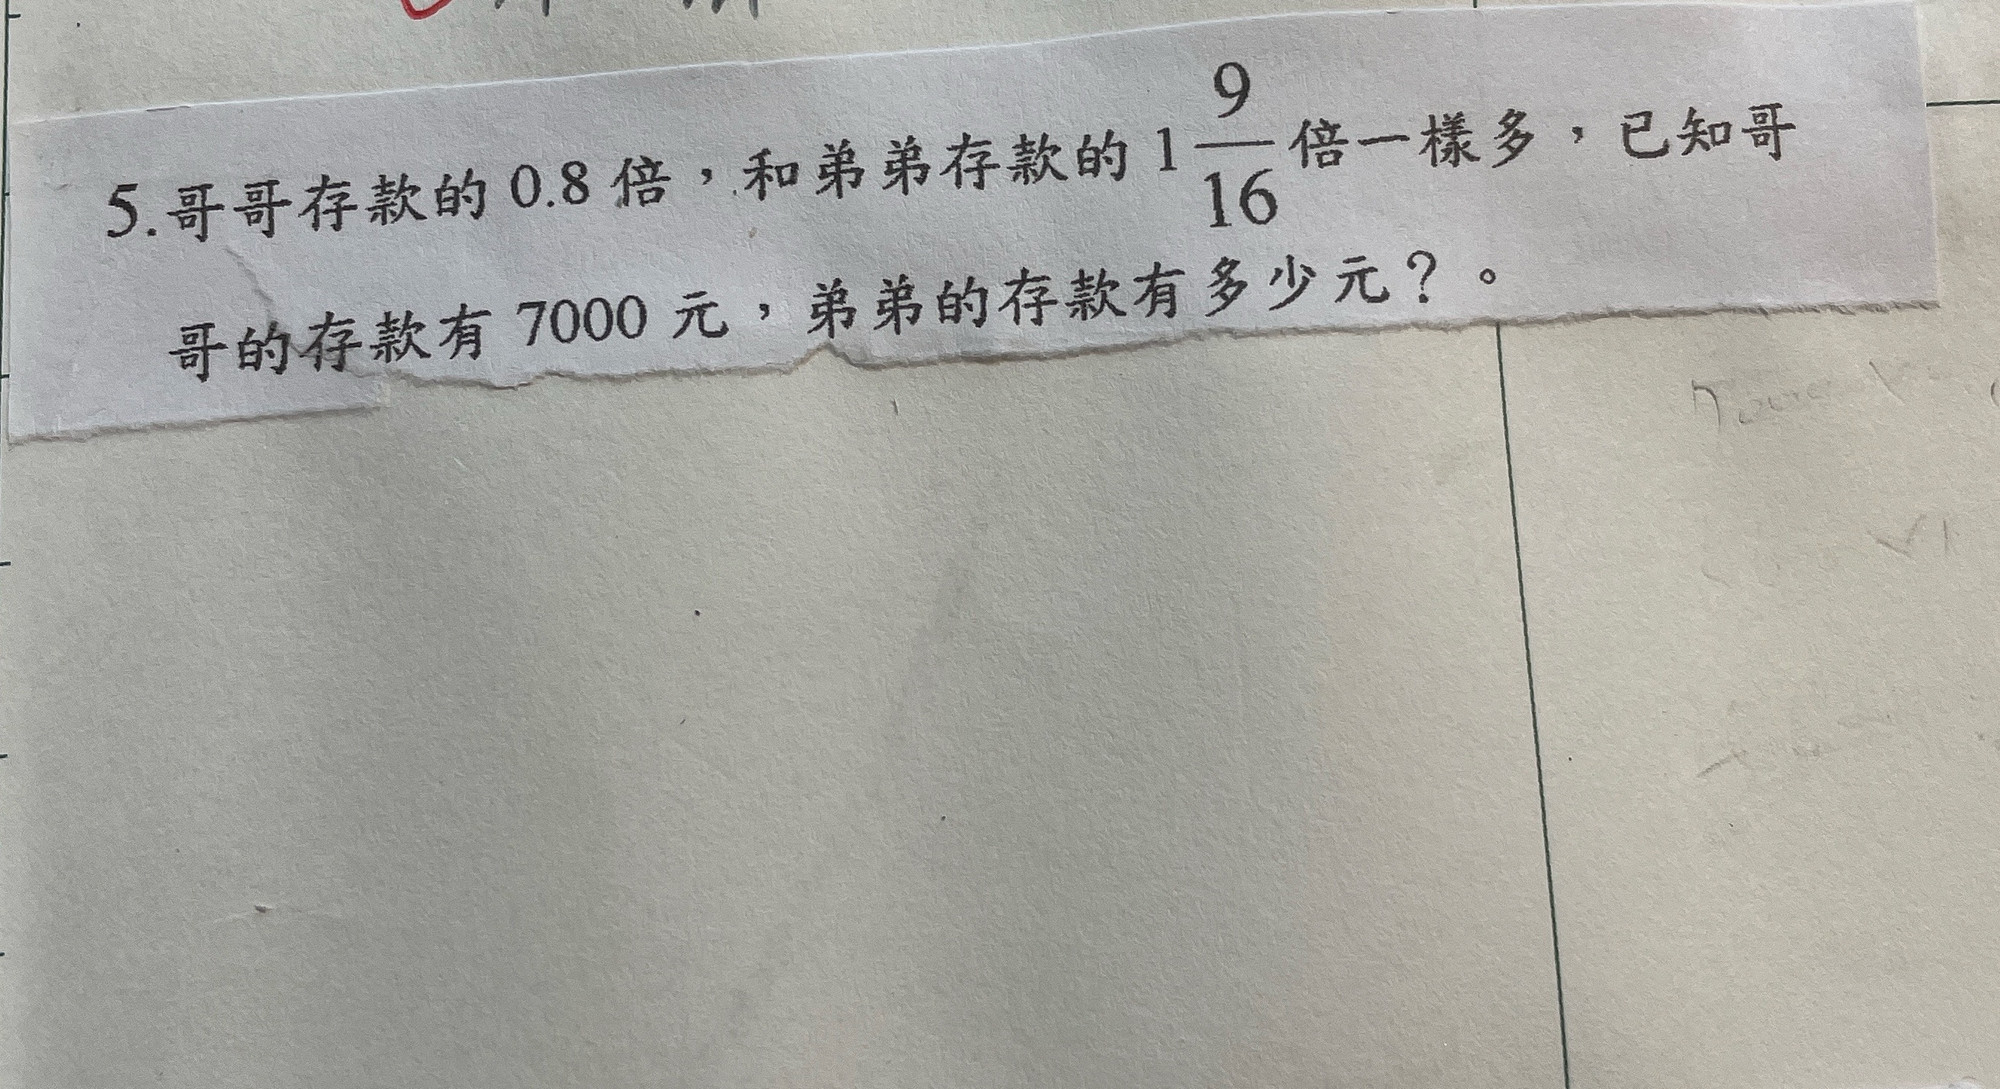 5.哥哥存款的 0.8 倍，和弟弟存款的 1 9/16 倍一樣多，已知哥
哥的存款有 7000 元，弟弟的存款有多少元？。